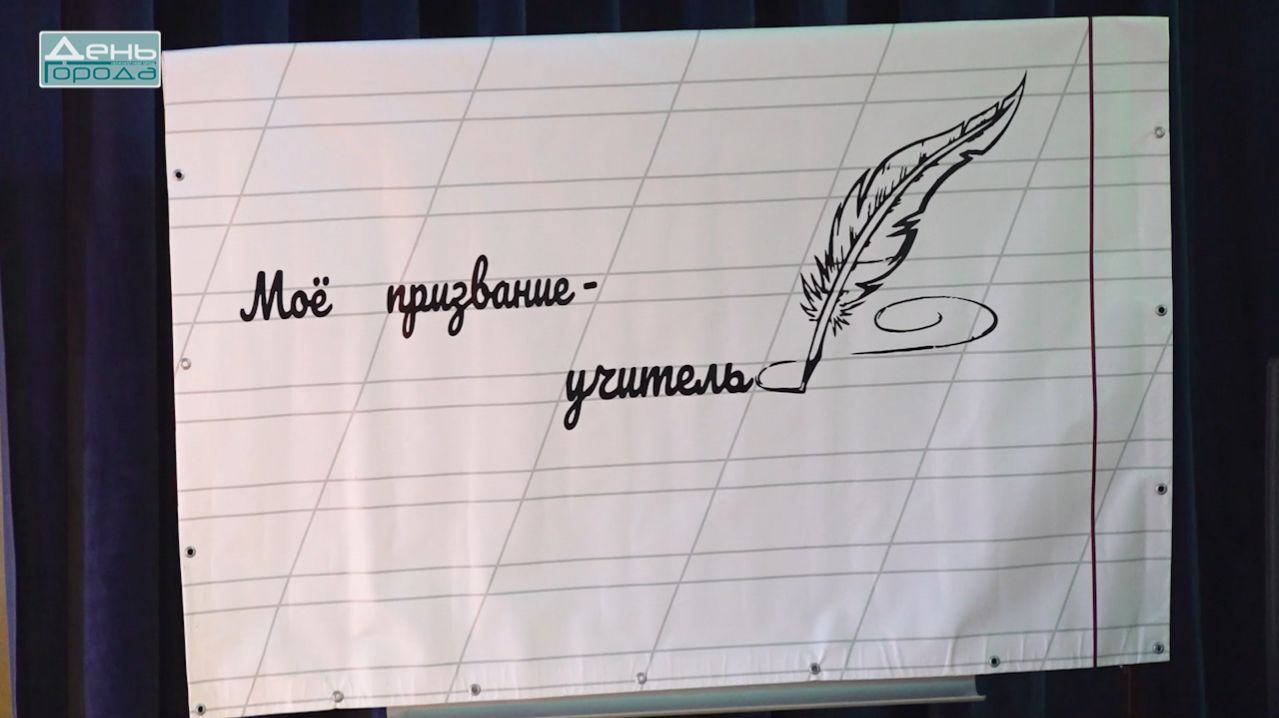 День
Города
Моё призвание -
учитель